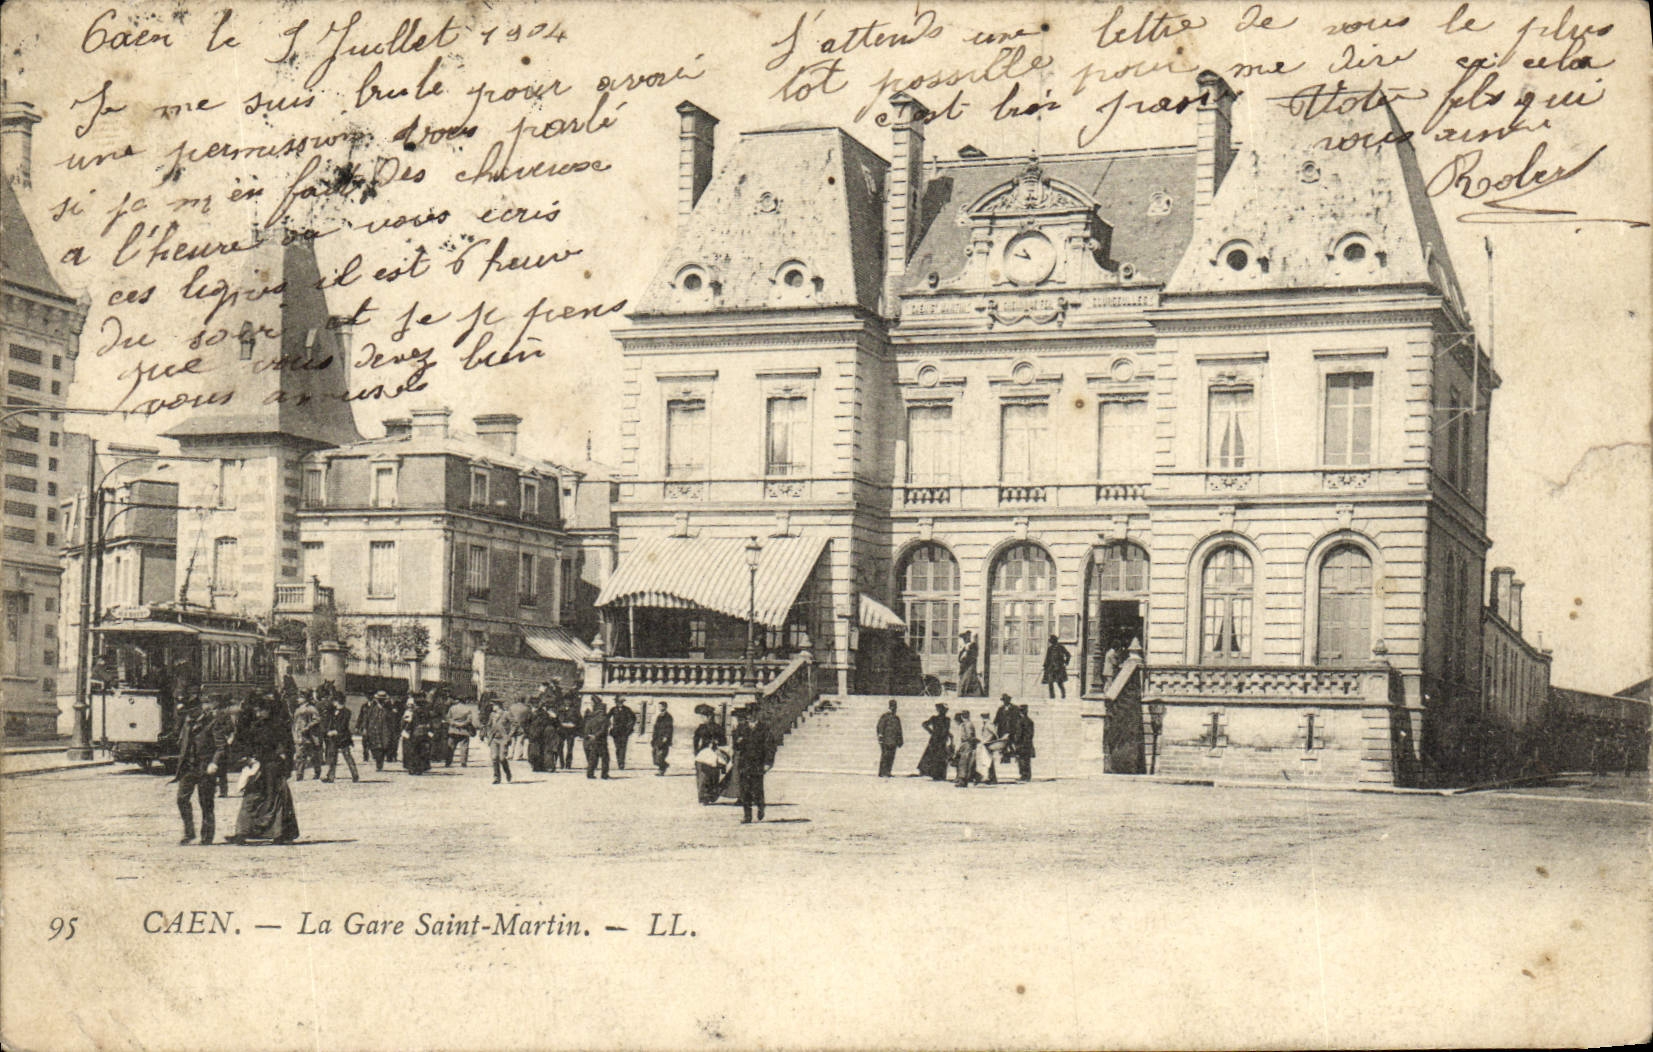 Caen le 5 Juillet 1904
Je me suis brulé pour avoir
une permission vous parlé
si je m'en fait, Des cheveuse
a l'heure où vous ecris
ces lignes il est 6 heure
du soir et je je pens
que vous devez bien
vous amuse
J'attends une lettre de vous le plus
tot possible pour me dire si cela
c'est bien passé Votre fils qui
vous aime
Robert
95 CAEN. — La Gare Saint-Martin. — LL.